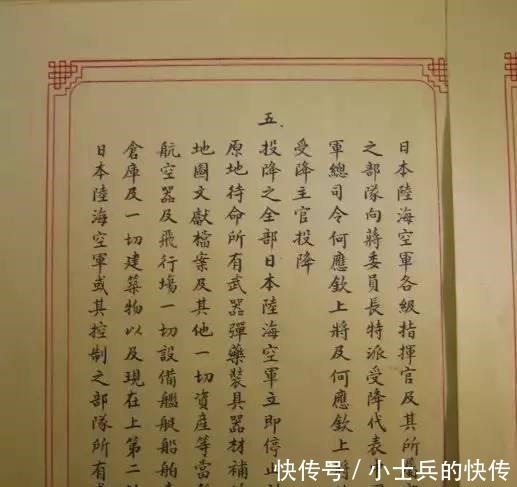 日本陸海空軍各級指揮官及其所
之部隊向蔣委員長特派受降代表中
軍總司令何應欽上將及何應欽上將
受降主官投降
五、
投降之全部日本陸海空軍立即停止
原地待命所有武器彈藥裝具器材補
地圖文獻檔案及其他一切資產等當
航空器及飛行場一切設備艦艇船舶
倉庫及一切建築物以及現在上第二
日本陸海空軍或其控制之部隊所有
快传号/小士兵的快传